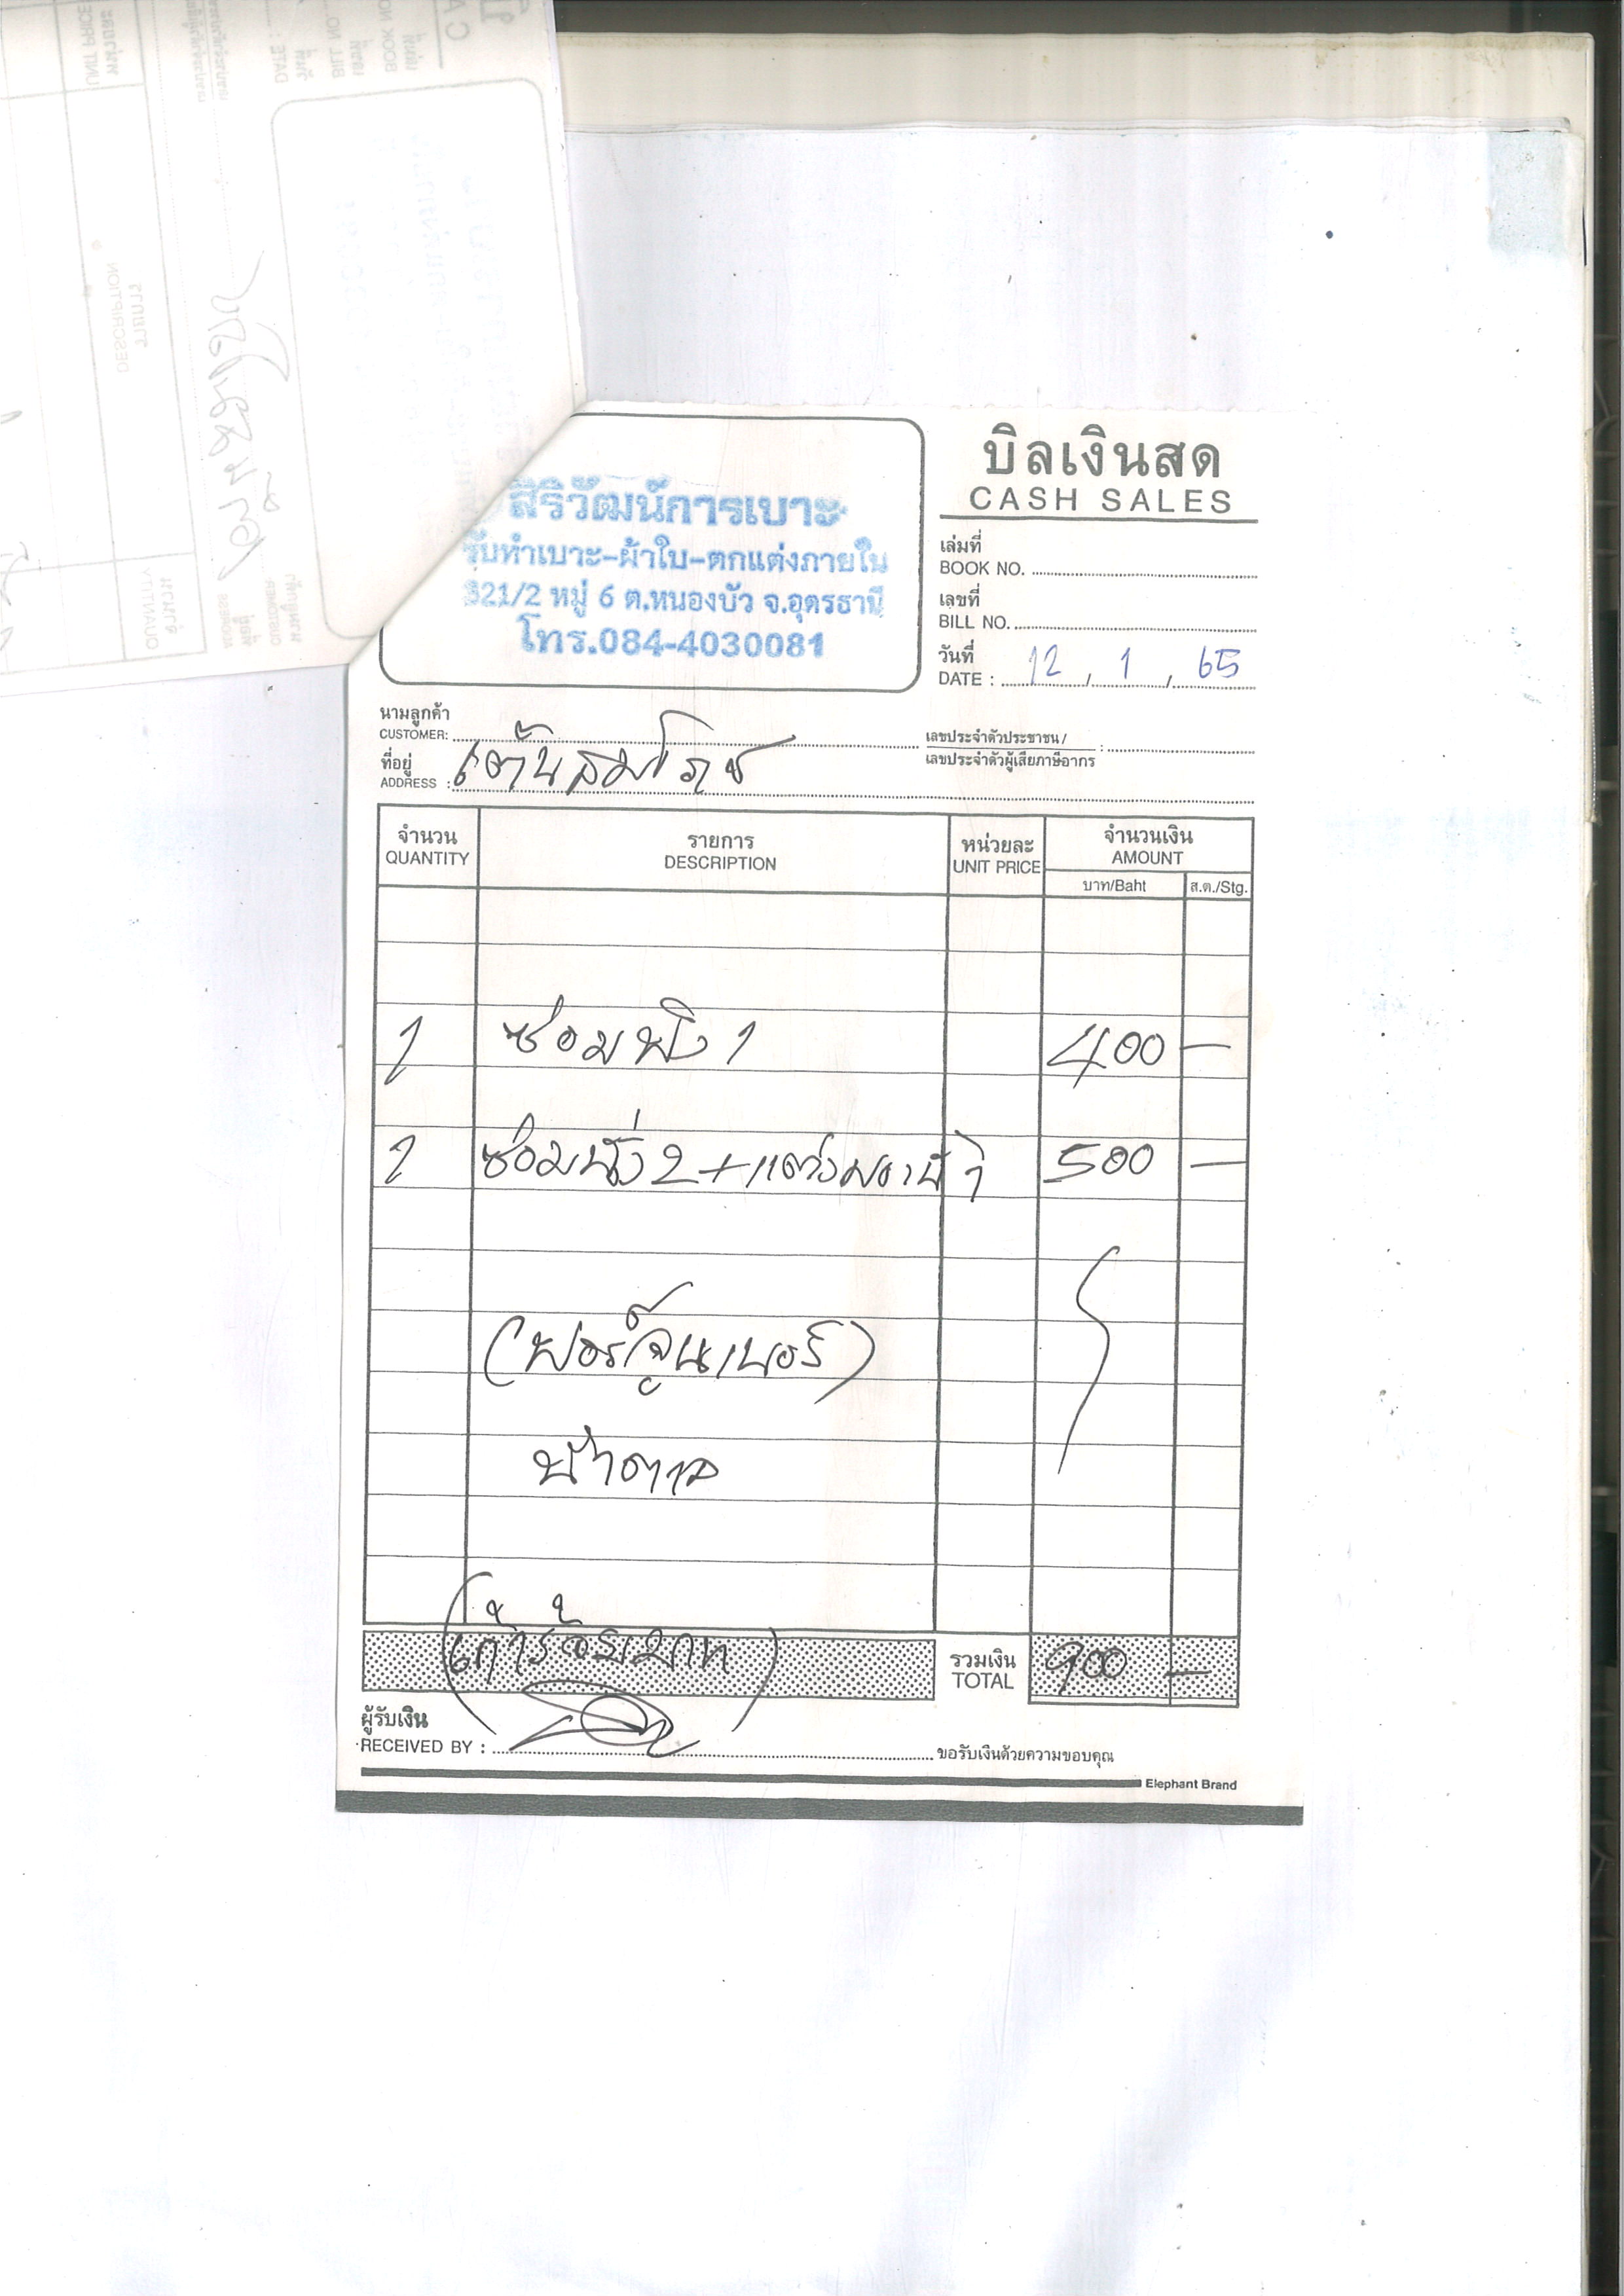 บิลเงินสด
CASH SALES
สิริวัฒน์การเบาะ
รับทำเบาะ-ผ้าใบ-ตกแต่งภายใน
321/2 หมู่ 6 ต.หนองบัว จ.อุดรธานี
โทร.084-4030081
เล่มที่
BOOK NO.
เลขที่
BILL NO.
วันที่
DATE : 12 / 1 / 65
นามลูกค้า
CUSTOMER:
เลขประจำตัวประชาชน /
เลขประจำตัวผู้เสียภาษีอากร :
ที่อยู่
ADDRESS : เต้นสมโภช
จำนวน QUANTITY รายการ DESCRIPTION หน่วยละ UNIT PRICE จำนวนเงิน AMOUNT
บาท/Baht ส.ต./Stg.
1 ซ่อมพิง 1 400 –
1 ซ่อมนั่ง 2 + แต่งฟองน้ำ 500 –
(ฟอร์จูนเนอร์)
น้ำตาล
(เก้าร้อยบาท)
รวมเงิน
TOTAL 900 –
ผู้รับเงิน
RECEIVED BY :
ขอรับเงินด้วยความขอบคุณ
Elephant Brand